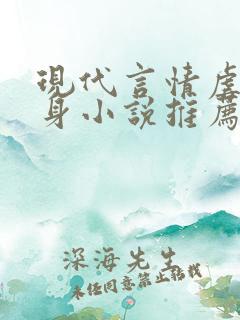 現代言情虐
身小說推薦
深海先生
未經同意禁止轉載